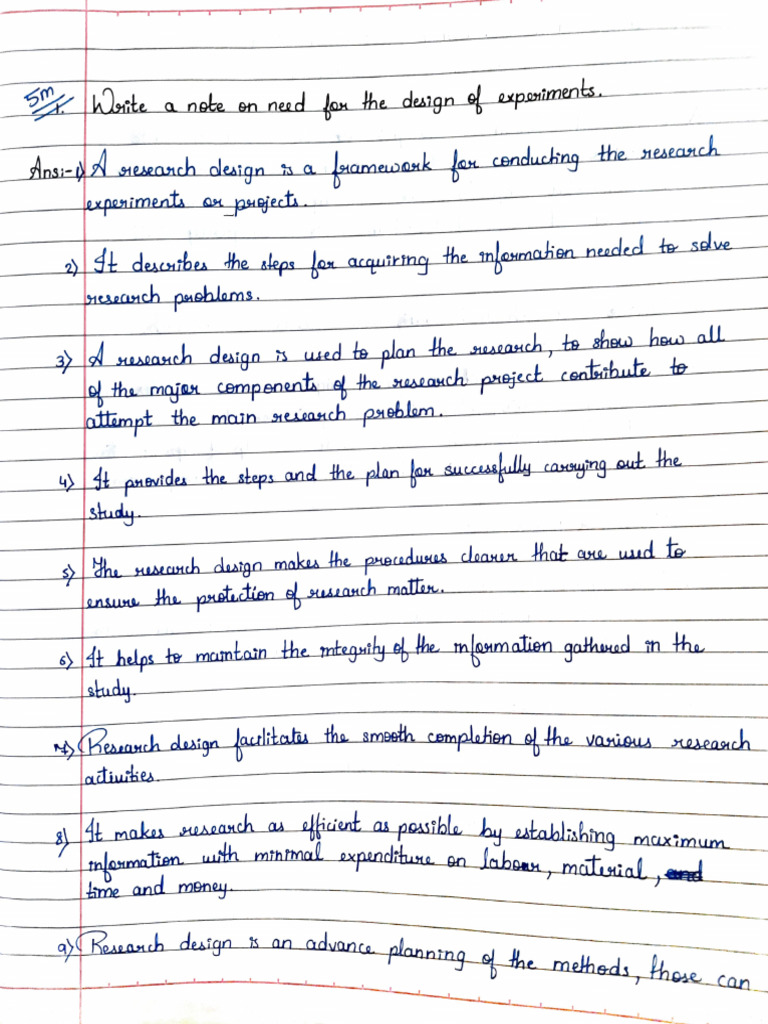 5m
1. Write a note on need for the design of experiments.
Ans:-1) A research design is a framework for conducting the research
experiments or projects.
2) It describes the steps for acquiring the information needed to solve
research problems.
3) A research design is used to plan the research, to show how all
of the major components of the research project contribute to
attempt the main research problem.
4) It provides the steps and the plan for successfully carrying out the
study.
5) The research design makes the procedures clearer that are used to
ensure the protection of research matter.
6) It helps to maintain the integrity of the information gathered in the
study.
7) Research design facilitates the smooth completion of the various research
activities.
8) It makes research as efficient as possible by establishing maximum
information with minimal expenditure on labour, material, and
time and money.
9) Research design is an advance planning of the methods, those can